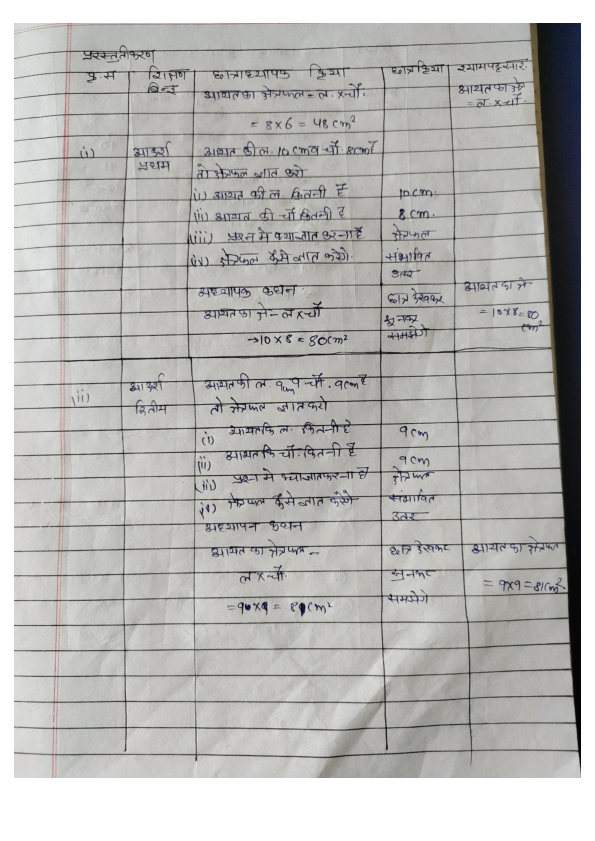 प्रस्तुतीकरण
क्र.स शिक्षण बिन्दु छात्राध्यापक क्रिया छात्रक्रिया श्यामपट्ट सार
आयत का क्षेत्रफल = ल. x चौ. आयत का क्षे = ल. x चौ.
= 8 x 6 = 48 cm²
(i) आदर्श प्रथम आयत की ल. 10 cm व चौ. 8cm है
तो क्षेत्रफल ज्ञात करो
(i) आयत की ल. कितनी है 10 cm.
(ii) आयत की चौ कितनी है 8 cm.
(iii) प्रश्न मे क्या ज्ञात करना है क्षेत्रफल
(iv) क्षेत्रफल कैसे ज्ञात करेगे. संभावित उत्तर
अध्यापक कथन. छात्र देखकर आयत का क्षे
आयत का क्षे - ल x चौ सुनकर = 10 x 8 = 80 cm²
→ 10 x 8 = 80 cm² समझेगे
(ii) आदर्श द्वितीय आयत की ल 9cm चौ. 9 cm है
तो क्षेत्रफल ज्ञात करो
(i) आयत कि ल. कितनी है 9 cm
(ii) आयत कि चौ. कितनी है 9 cm
(iii) प्रश्न मे क्या ज्ञात करना है क्षेत्रफल
(iv) क्षेत्रफल कैसे ज्ञात करेगे संभावित
अध्यापन कथन उतर
आयत का क्षेत्रफल - छात्र देखकर आयत का क्षेत्रफल
ल x चौ. सुनकर = 9 x 9 = 81 cm²
= 9 x 9 = 81 cm² समझेगे